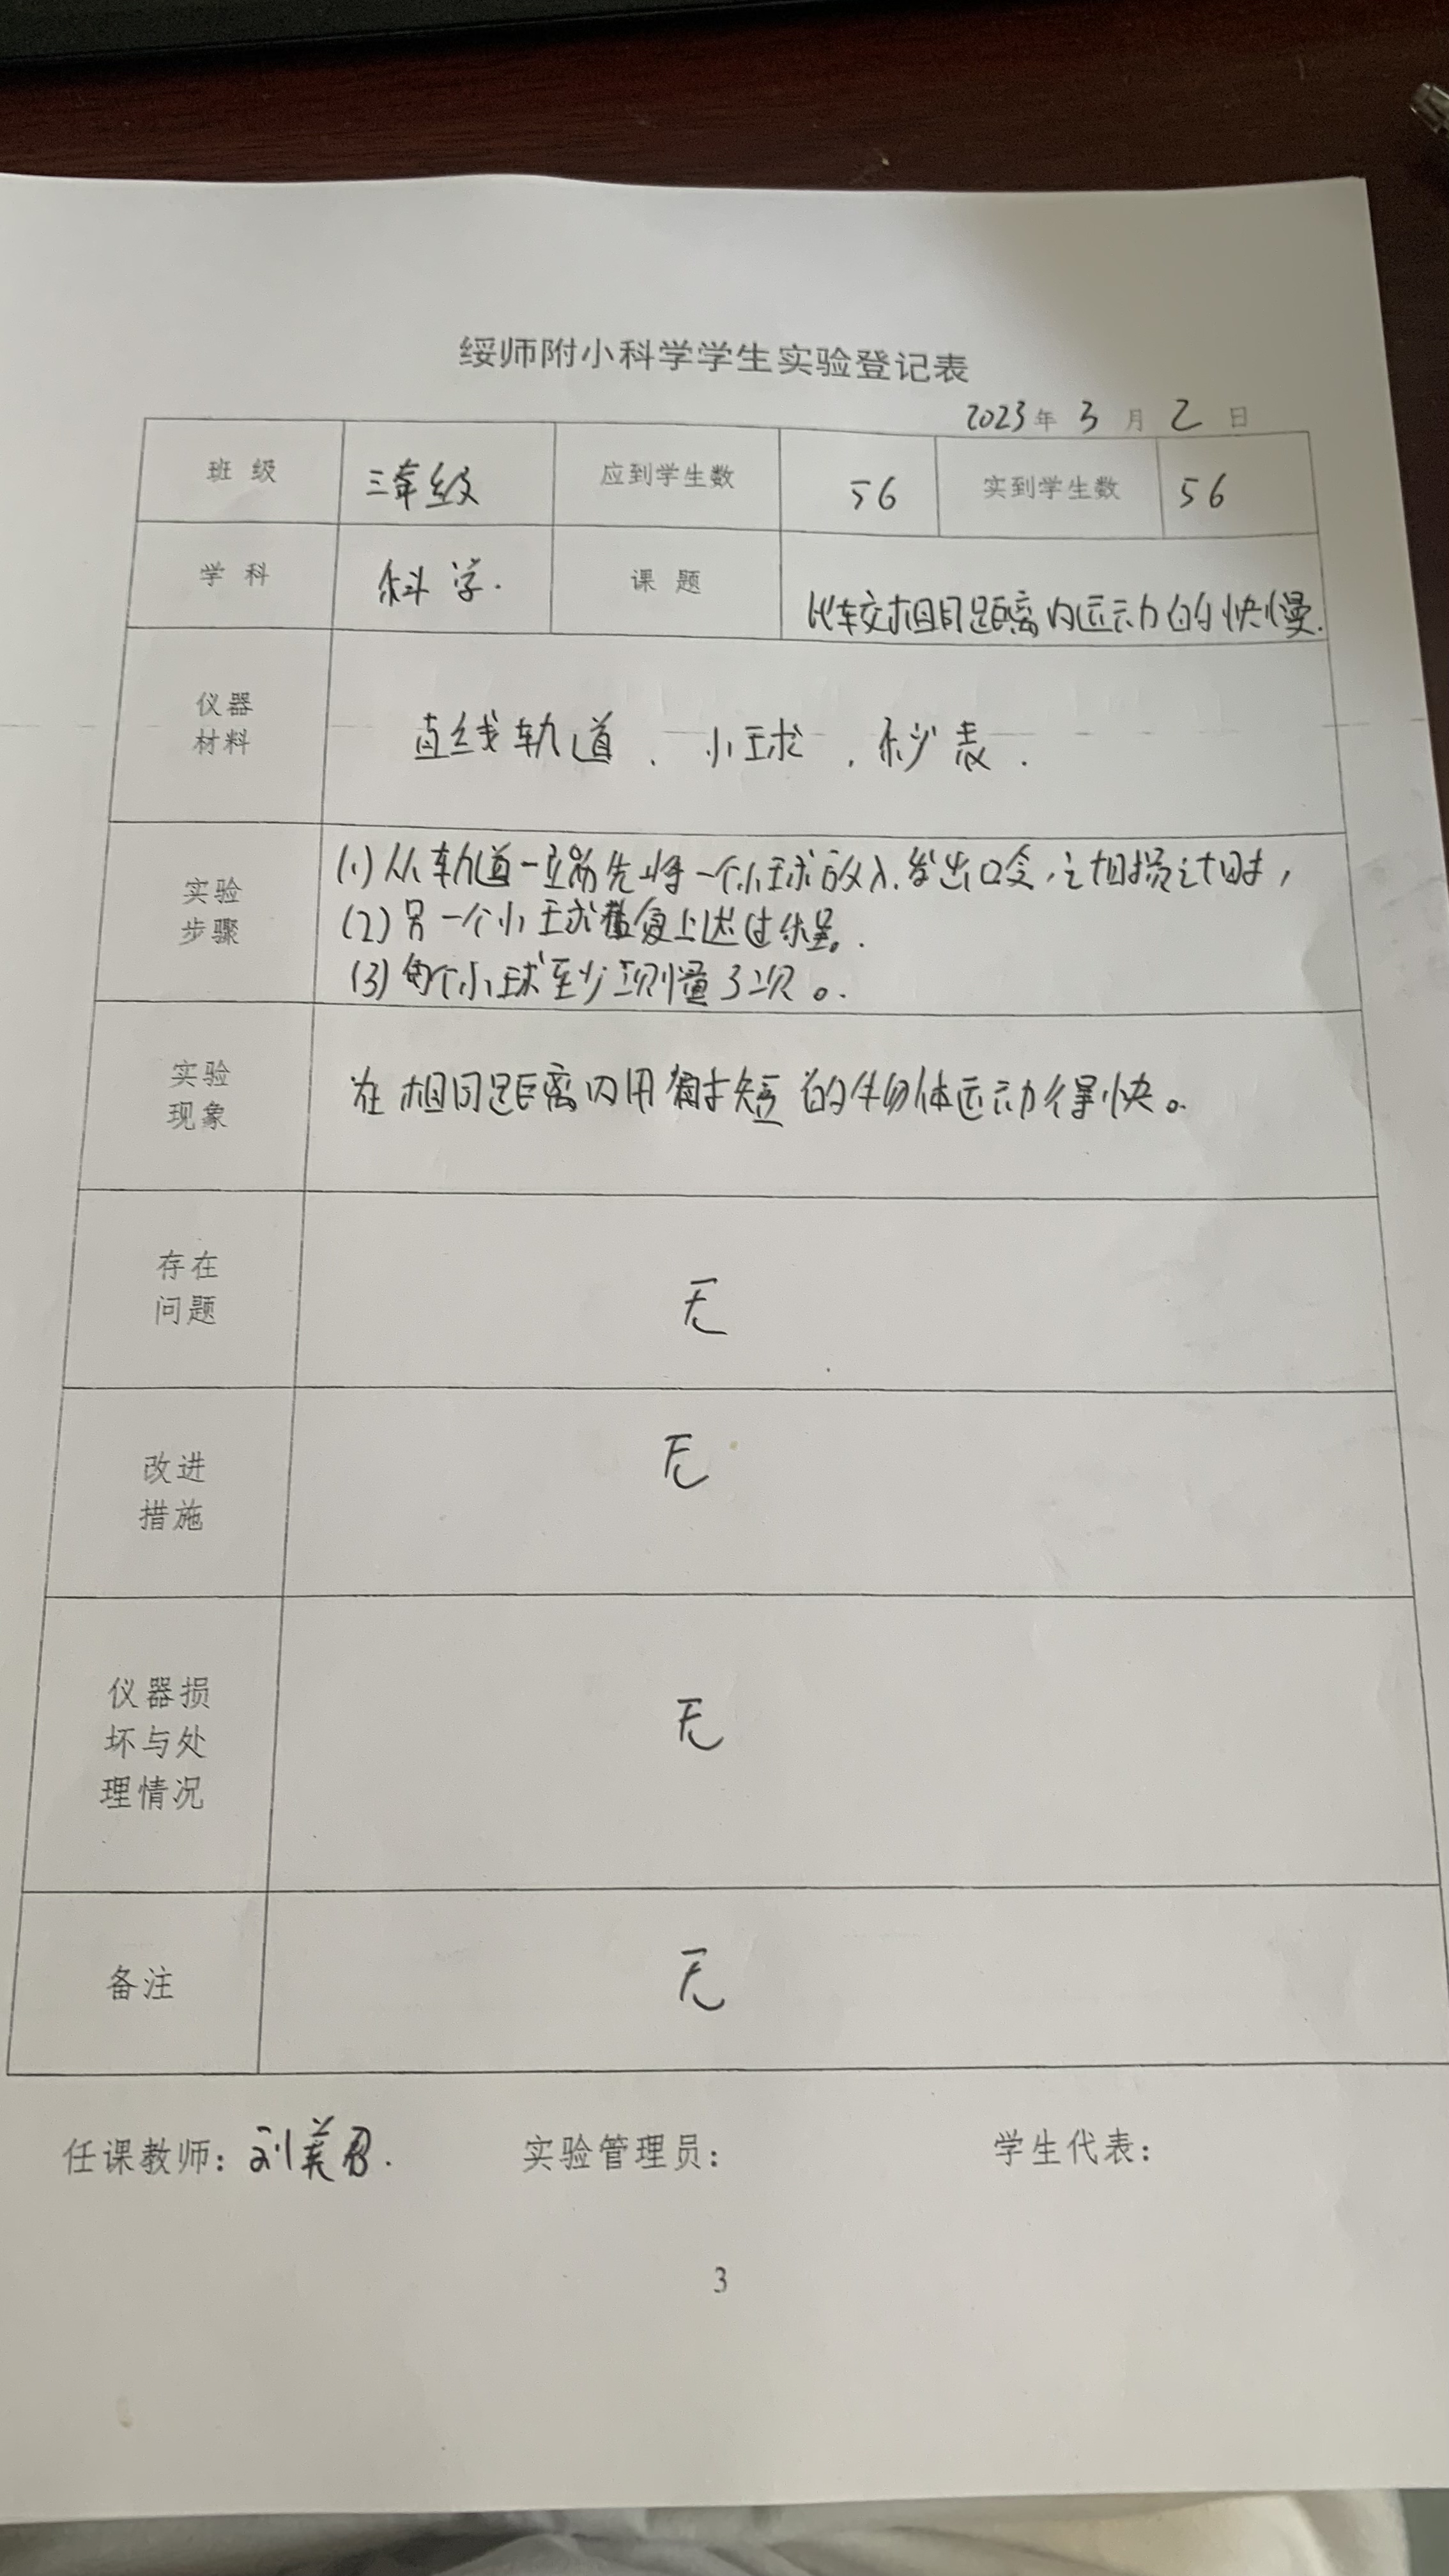 绥师附小科学学生实验登记表
2023年 3 月 2 日
班 级 三年级 应到学生数 56 实到学生数 56
学 科 科学. 课 题 比较相同距离内运动的快慢.
仪器
材料
直线轨道、小球、秒表.
实验
步骤
(1)从轨道一端先将一个小球放入,发出口令,计时员计时,
(2)另一个小球重复上述过程。.
(3)每个小球至少测量3次。.
实验
现象
在相同距离内用时短的物体运动得快。
存在
问题
无
改进
措施
无
仪器损
坏与处
理情况
无
备注
无
任课教师:刘美君. 实验管理员: 学生代表:
3